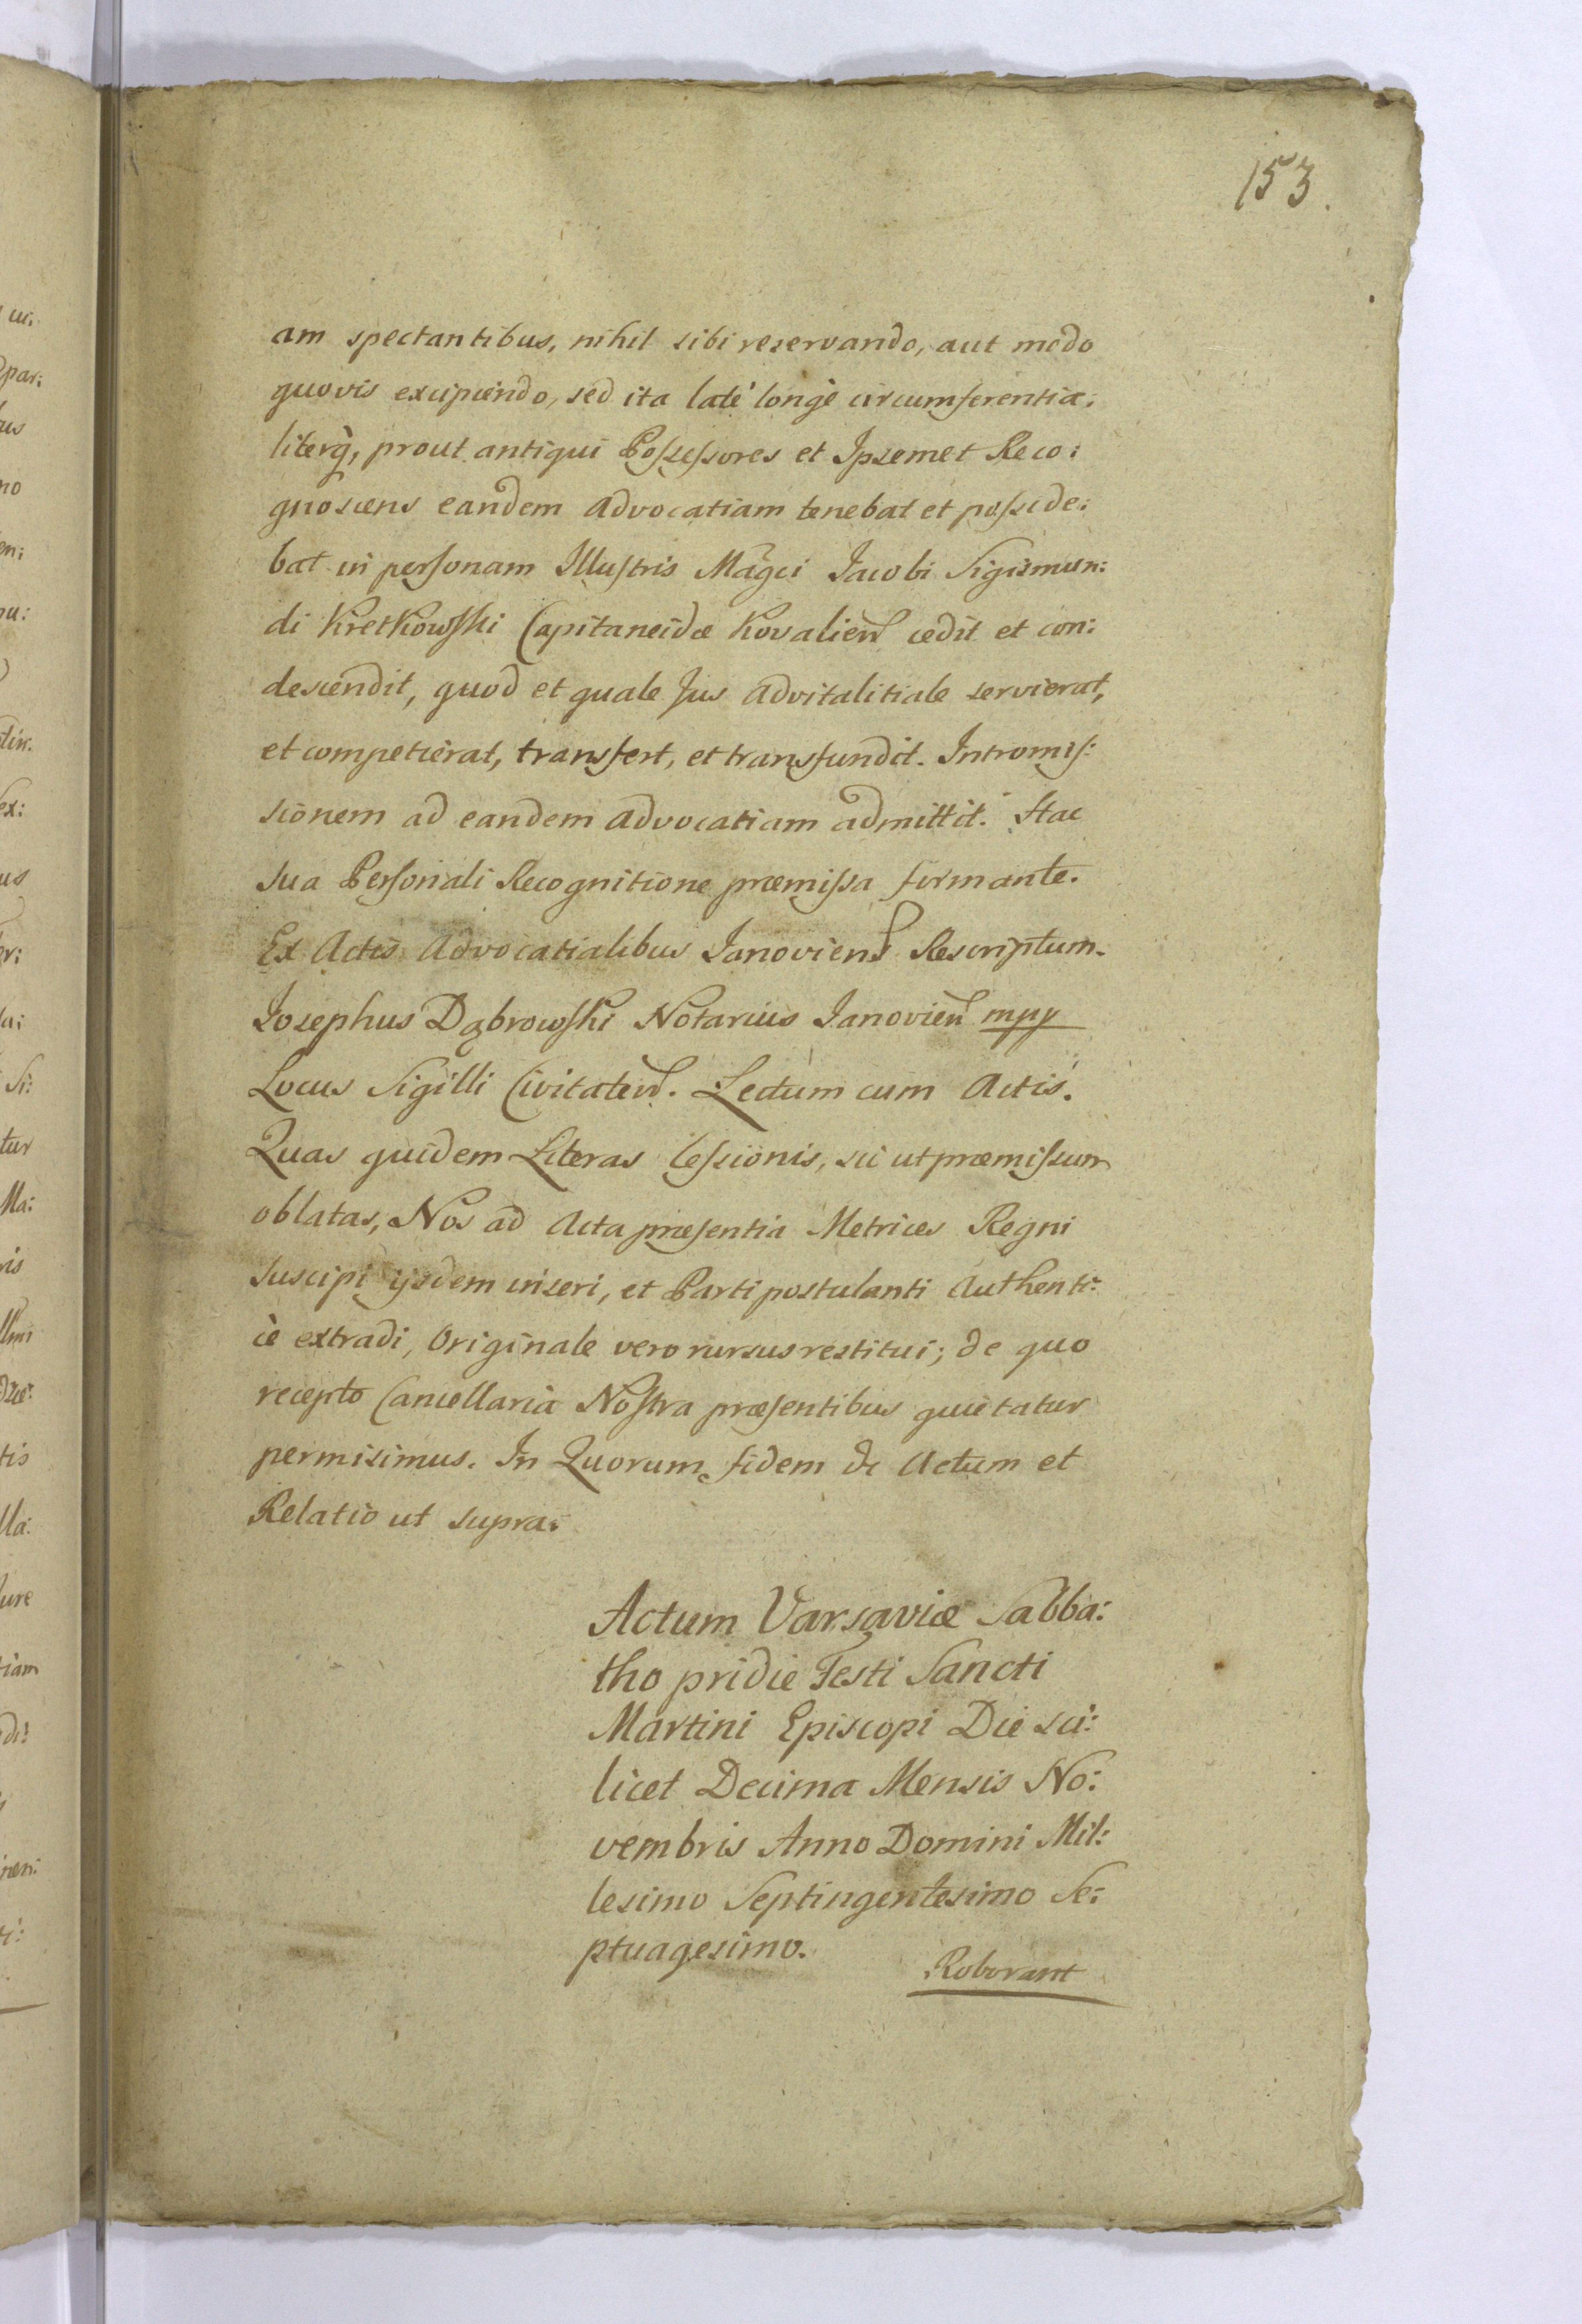 153.
am spectantibus, nihil sibi reservando, aut modo
quovis excipiendo, sed ita laté longè circumferentia:
literq̀, prout antiqui Poſseſsores et Ipsemet Reco:
gnoscens eandem advocatiam tenebat et poſside:
bat in perſonam Illuſtris Mag̃ci Iacobi Sigismun:
di Kretkowſki Capitaneidæ Kovalien̄ cedit et con:
descendit, quod et quale Jus advitalitiale servierat,
et competierat, transfert, et transfundit. Intromiſ:
sionem ad eandem advocatiam admittit. Hac
sua Perſonali Recognitione præmiſsa firmante.
Ex Actis Advocatialibus Ianoviens̄ Rescriptum.
Iosephus Dąbrowſki Notarius Ianovien̄ mpp
Locus Sigilli Civitaten̄. Lectum cum Actis.
Quas quidem Literas Ceſsionis, sic ut præmiſsum
oblatas, Nos ad Acta præſentia Metrices Regni
suscipi ijsdem inseri, et Parti postulanti Authenti:
cè extradi, Originale vero rursus restitui; de quo
recepto Cancellaria Noſtra præſentibus quietatur
permisimus. In Quorum fidem &c Actum et
Relatio ut supra.
Actum Varsaviæ Sabba:
tho pridie Festi Sancti
Martini Episcopi Die sci:
licet Decima Mensis No:
vembris Anno Domini Mil:
lesimo Septingentesimo Se:
ptuagesimo.
Roborant